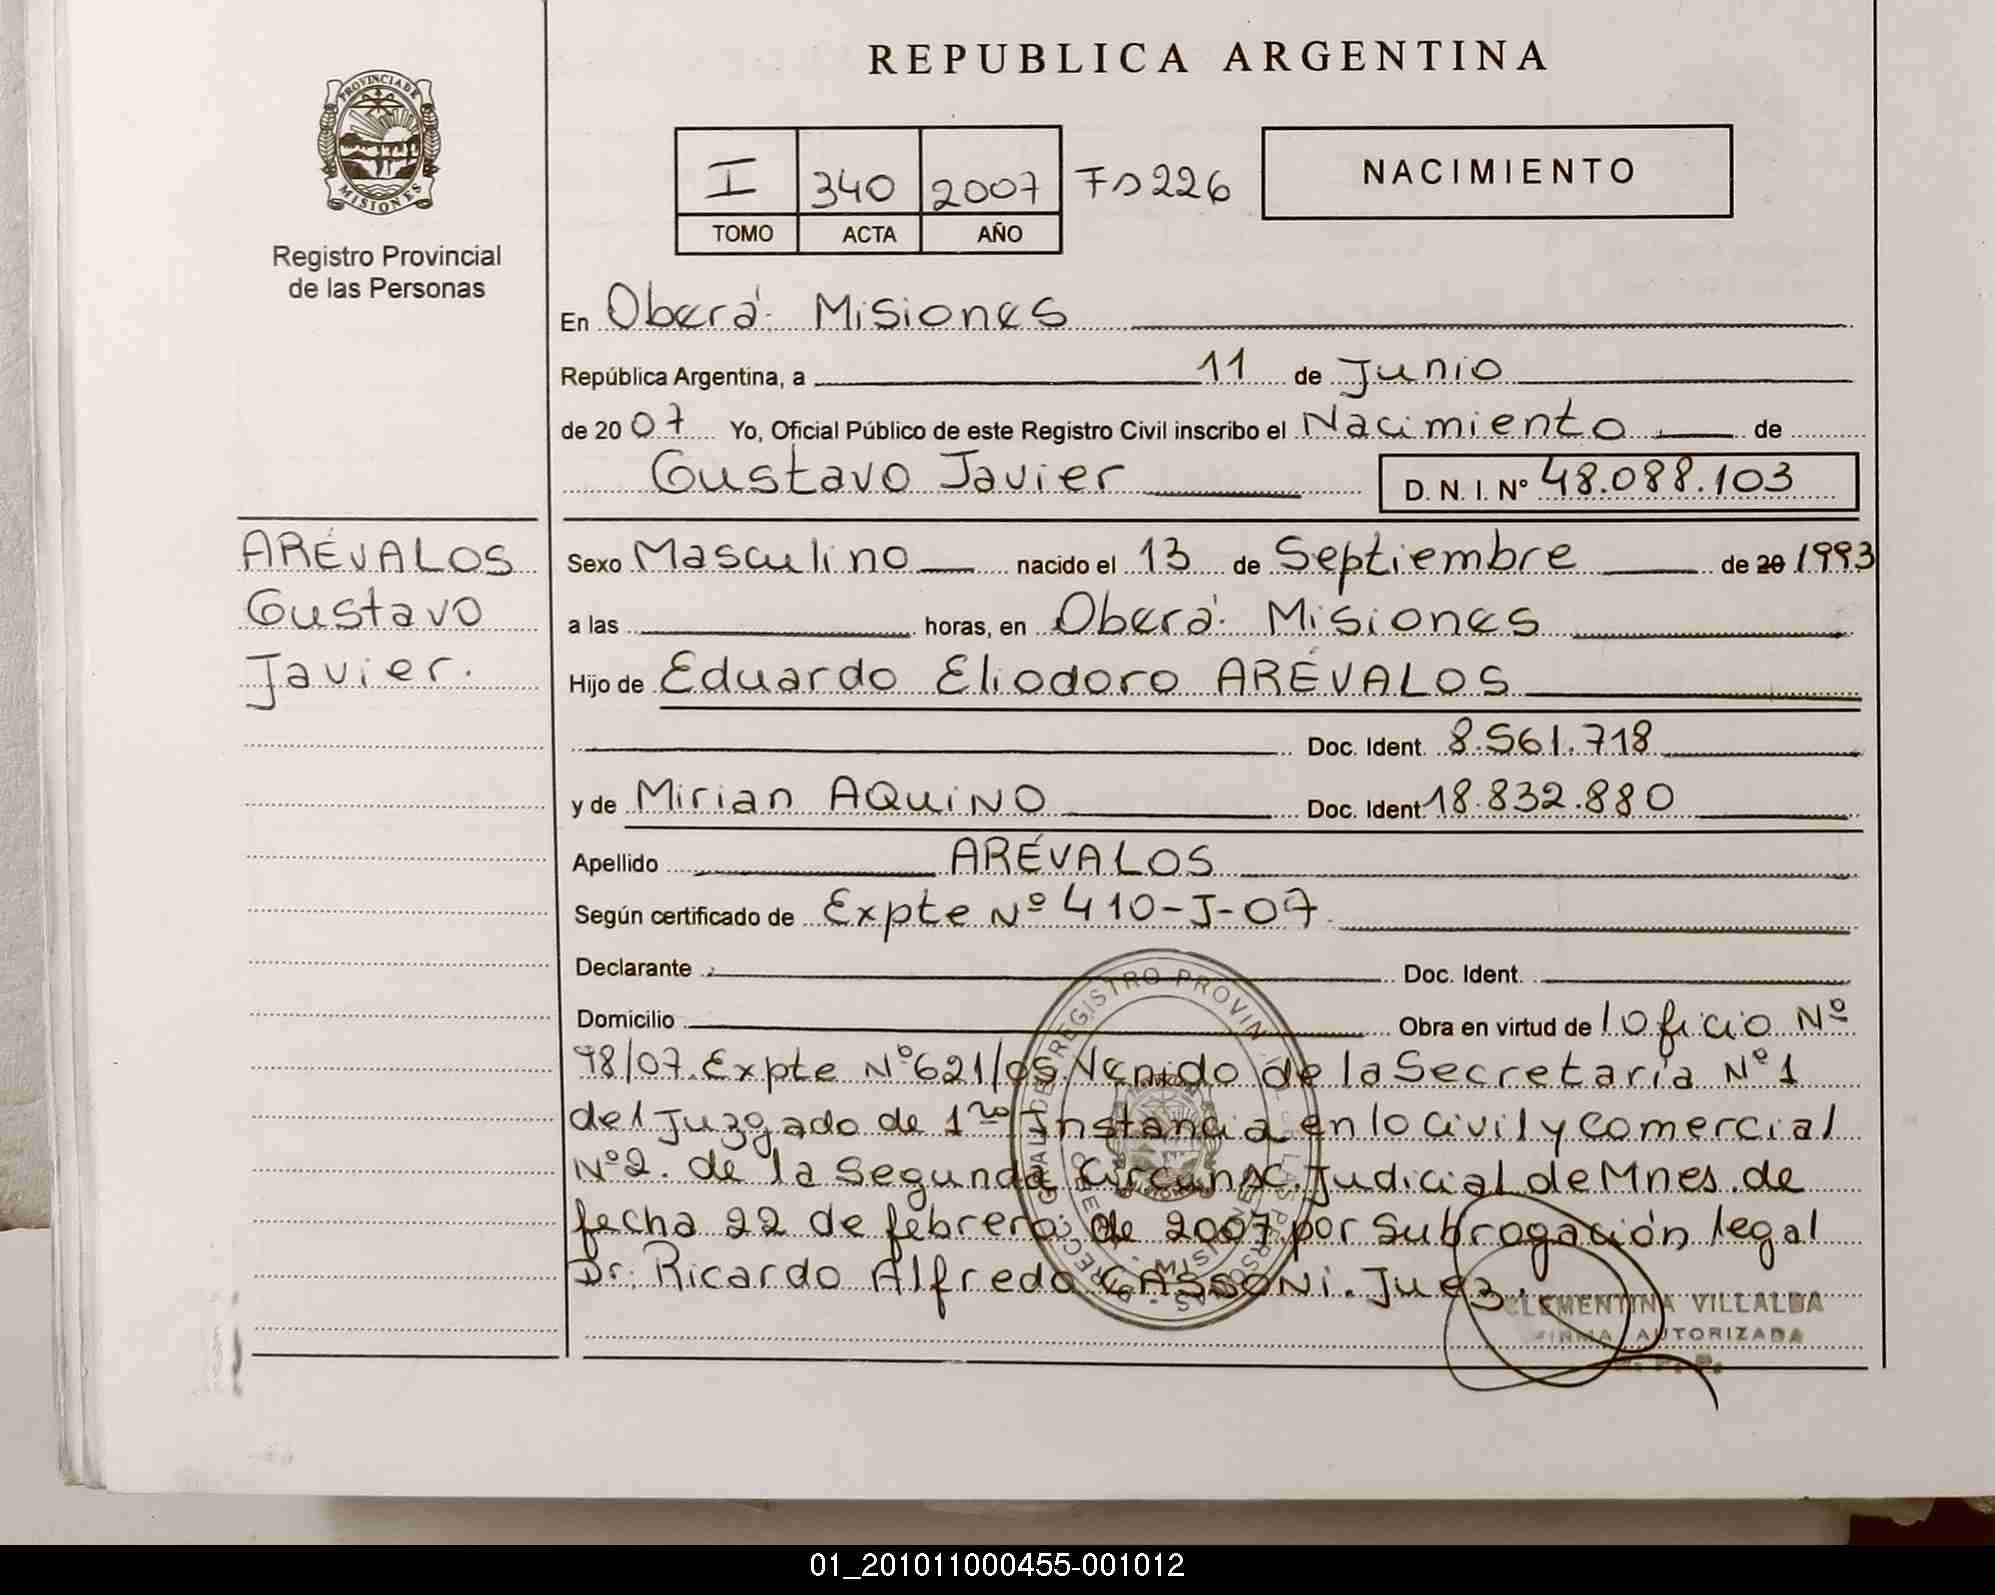 REPUBLICA ARGENTINA
PROVINCIA DE
MISIONES
Registro Provincial
de las Personas
I 340 2007 Fº 226
TOMO ACTA AÑO
NACIMIENTO
En Oberá. Misiones
República Argentina, a 11 de Junio
de 20 07 Yo, Oficial Público de este Registro Civil inscribo el Nacimiento de
Gustavo Javier D. N. I. Nº 48.088.103
ARÉVALOS
Gustavo
Javier.
Sexo Masculino nacido el 13 de Septiembre de 20 1993
a las horas, en Oberá. Misiones
Hijo de Eduardo Eliodoro ARÉVALOS
Doc. Ident. 8.561.718
y de Mirian AQUINO Doc. Ident. 18.832.880
Apellido ARÉVALOS
Según certificado de Expte Nº 410-J-07.
Declarante Doc. Ident.
Domicilio Obra en virtud de / Oficio Nº
98/07. Expte Nº 621/05. Venido de la Secretaría Nº 1
del Juzgado de 1ro Instancia en lo Civil y Comercial
Nº 2. de la Segunda Circunsc. Judicial de Mnes. de
fecha 22 de febrero de 2007 por Subrogación legal
Dr. Ricardo Alfredo CASSONI. Juez.
CLEMENTINA VILLALBA
FIRMA AUTORIZADA
01_201011000455-001012